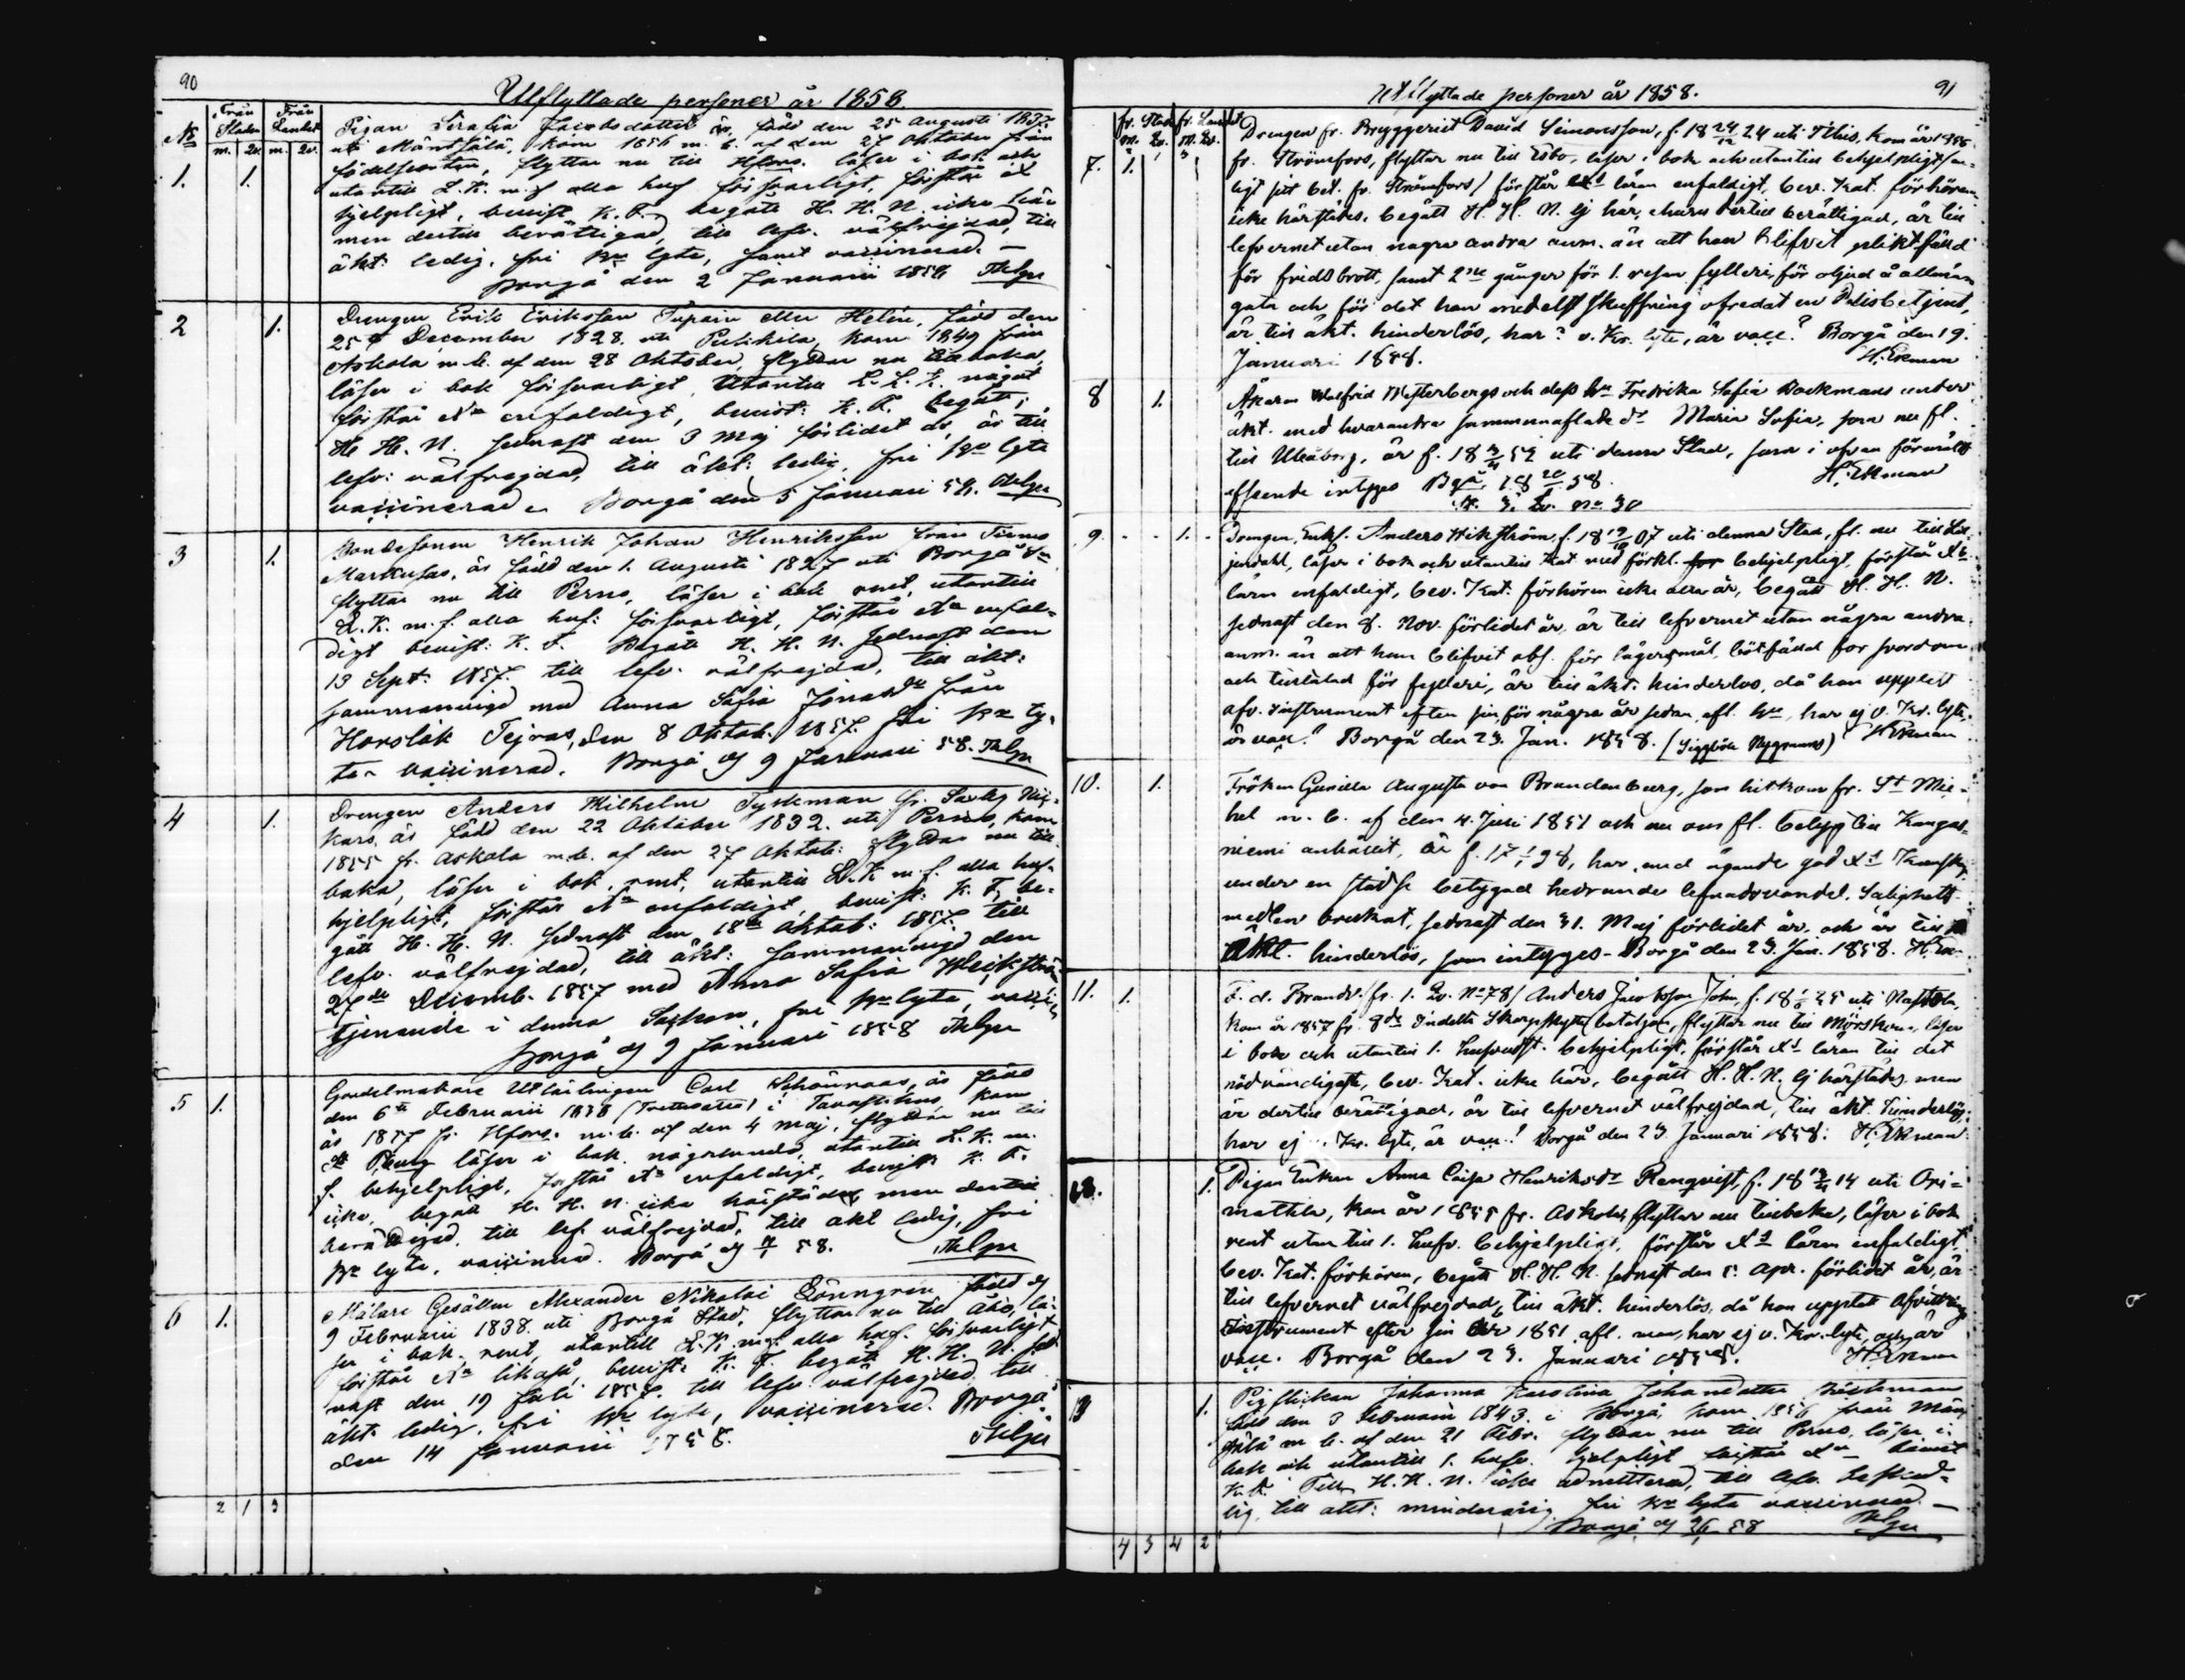 90
Utflyttade personer år 1858
Nº Från Staden Från Landet
m. qv. m. qv.
1. 1.
Pigan Serafia Jacobsdotter är född den 25 Augusti
uti Mäntsälä, kom 1856 m. b. af den 27 Oktober från
födelseorten, flyttar nu till Hfors. läser i bok och
utantill L. K. m. f. alla huf. försvarligt, förstår
hjelpligt, bevist K. F. begått H. H. N. icke här
men dertill berättigad, till lefv. välfrejdad, till
äkt: ledig. fri lyte, samt vaccinerad. —
Borgå den 2 Januari 1858 Thlgn
2 1.
Drengen Erik Eriksson eller Helin, född den
25 December 1828. uti Pukkila, kom 1849 från
Askola m. b. af den 28 Oktober, flyttar nu tillbaka,
läser i bok försvarligt, Utantill L. K. något
förstår enfaldigt, bevist: K. F. begått
H. H. N. sednast den 3 Maj förlidet år, är till
lefv: välfrejdad, till äkt: ledig, fri lyte
vaccinerad. Borgå den 5 Januari 58. Thlgn
3 1.
Bondesonen Henrik Johan Henriksson från
Markusas, är född den 1. Augusti 1827 uti Borgå
flyttar nu till Perno, läser i bok rent, utantill
L. K. m. f. alla huf: försvarligt, förstår enfal-
digt bevist: K. F. Begått H. H. N. sednast den
13 Sept: 1857. till lefv. välfrejdad, till äkt:
sammanvigd med Anna Sofia från
den 8 Oktob. 1857. fri ly-
te vaccinerad. Borgå d. 9 Januari 58. Thlgn
4 1.
Drengen Anders Wilhelm Tyskman fr.
kars, är född den 22 Oktober 1832. uti Perno, kom
1855 fr. Askola m. b. af den 27 Oktob: flyttar nu till-
baka, läser i bok, rent, utantill L. K. m. f. alla huf.
hjelpligt, förstår enfaldigt, bevist: K. F. be-
gått H. H. N. sednast den 18 Oktob: 1857. till
lefv. välfrejdad, till äkt: sammanvigd den
27 Decemb. 1857 med Anna Sofia
tjenande i denna Socken, fri lyte,
Borgå d. 9 Januari 1858 Thlgn
5 1.
Lärlingen Carl är född
den 6 Februari 1838 i Tavastehus, kom
år 1857 fr. Hfors. m. b. af den 4 Maj, flyttar nu till
läser i bok någorlunda, utantill L. K. m.
f. behjelpligt, förstår enfaldigt, bevist K. F.
icke, begått H. H. N. icke härstädes men dertill
berättigad, till lef. välfrejdad, till äkt ledig, fri
lyte, vaccinerad. Borgå d. 58. Thlgn
6 1.
Målare Gesällen Alexander Nikolai Lönngren född d.
9 Februari 1838. uti Borgå Stad, flyttar nu till Åbo, lä-
ser i bok, rent, utantill L. K. m. f. alla huf. försvarligt
förstår likaså, bevist: K. F. begått H. H. N. sed-
nast den 19 Juli 1857. till lefv. välfrejdad till
äkt: ledig, fri lyte, vaccinerad. Borgå
den 14 Januari 1858. Thlgn
2 1 3
91
Utflyttade personer år 1858.
fr. Stad fr. Landet
m. qv. m. qv.
7. 1.
Drengen fr. Bryggeriet David Simonsson, f. 18 24/12 24 uti kom år
fr. Strömfors, flyttar nu till Esbo, läser i bok och utantill behjelpligt (en-
ligt sitt bet. fr. Strömfors) förstår läran enfaldigt, bev. Kat. förhören
icke härstädes, begått H. H. N. ej här, ehuru dertill berättigad, är till
lefvernet utan några andra anm. än att han blifvit pliktfälld
för fridsbrott, samt 2ne gånger för 1. resan fylleri, för oljud å allmän
gata och för det han medelst skuffning ofredat en Polisbetjent,
är till äkt. hinderlös, har ? v. Kr. lyte, är vacc? Borgå den 19.
Januari 1858. H. Ekman
8 1.
Åkaren Walfrid Westerbergs och dess hu Fredrika Sofia under
äkt. med hvarandra sammanaflade dr Maria Sofia, som nu fl.
till Uleåborg, är f. uti denna Stad, som i ofvan förmält
afseende intyges Bgå 58. H. Ekman
9. 1.
Drengen, Enkl. Anders Wikström, f. 07 uti denna Stad, fl. nu till
läser i bok och utantill Kat med förkl. behjelpligt, förstår
läran enfaldigt, bev. Kat: förhören icke alla år, begått H. H. N.
sednast den 8. Nov. förlidet år, är till lefvernet utan några andra
anm. än att han blifvit abs. för lägersmål, bötfälld for svordom
och tilltalad för fylleri, är till äkt. hinderlös, då han upplest
afv. instrument efter sin för några år sedan afl. hu, har ej v. Kr. lyte,
är vacc? Borgå den 23. Jan. 1858. H. Ekman
10. 1.
Fröken Gunilla Augusta von Brandenburg, som hitkom fr. St Mic-
hel m. b. af den 4. Juni 1851 och nu om fl. betyg till Kangas-
niemi anhållit, är f. 17 98, har, med ägande god Kunskap,
under en städse betygad hedrande lefnadsvandel, Salighetts
medlen brukat, sednast den 31. Maj förlidet år, och är till
äkt. hinderlös, som intyges. Borgå den 23. Jan. 1858. H. Ek-
11. 1.
F. d. Brandv. fr. 1. Qv. No 78/ Anders Jacobsson John, f. 18 25 uti
kom år 1857 fr. 8de Indelta Skarpskyttebataljon, flyttar nu till Mörskom, läser
i bok och utantill 1. hufvudst. behjelpligt, förstår läran till det
nödvändigaste, bev. Kat. icke här, begått H. H. N. ej härstädes, men
är dertill berättigad, är till lefvernet välfrejdad, till äkt. hinderlös,
har ej v. Kr. lyte, är vacc? Borgå den 23. Januari 1858. H. Ekman
12. 1.
Pigan Enkan Anna Caisa Henriksdr Renqvist, f. 18 14 uti Ori-
mattila, kom år 1855 fr. Askola, flyttar nu tillbaka, läser i bok
rent utantill 1. hufv. behjelpligt, förstår läran enfaldigt,
bev. Kat. förhören, begått H. H. N. sednast den 5. Apr. förlidet år, är
till lefvernet välfrejdad, till äkt. hinderlös, då hon upptett Afvittrings
Instrument efter sin år 1851 afl. man, har ej v. Kr. lyte, och är
vacc. Borgå den 23. Januari 1858. H. Ekman
13 1.
Pigflickan Johanna Karolina Johansdotter
född den 3 Februari 1843. i Borgå, kom 1856 från Mänt-
sälä m. b. af den 21 Febr. flyttar nu till Perno, läser i
bok och utantill 1. hufv. hjelpligt förstår bevist
K. F. Till H. H. N. icke admitterad, till lefv. beskied-
lig, till äkt: minderårig fri lyte vaccinerad —
Borgå d. 26/1 58 Thlgn
4 3 4 2